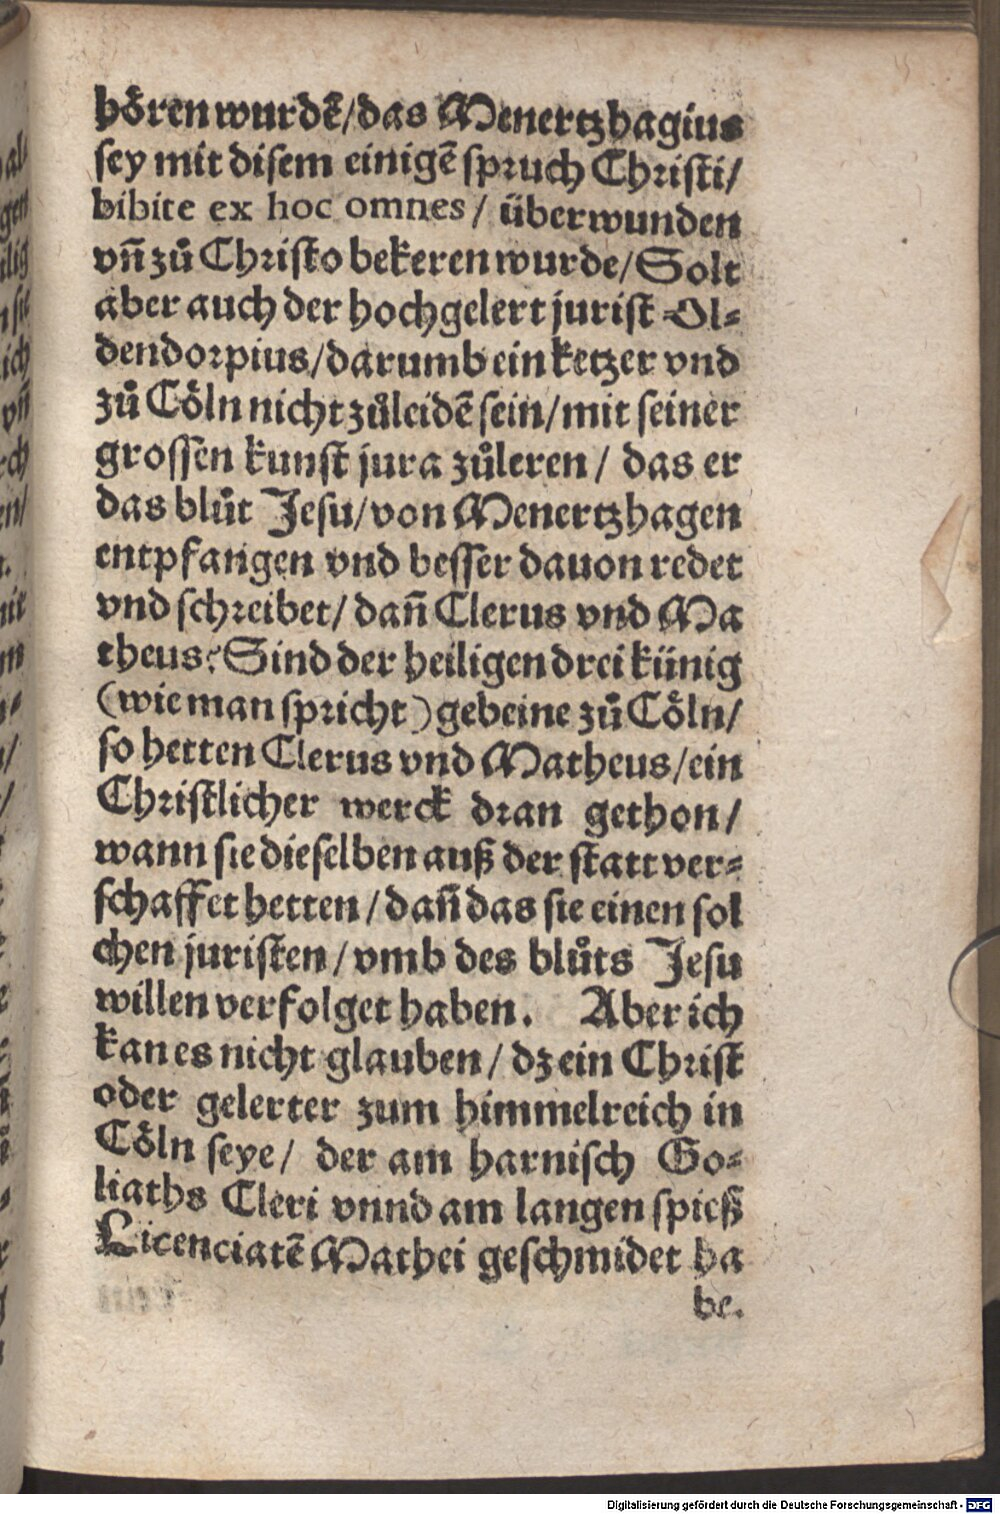 hören wurdē/das Menertzhagius
sey mit disem einigē spruch Christi/
bibite ex hoc omnes / überwunden
vñ zů Christo bekeren wurde/Solt
aber auch der hochgelert jurist Ol-
dendorpius/darumb ein ketzer vnd
zů Cöln nicht zůleidē sein/mit seiner
grossen kunst jura zůleren / das er
das blůt Jesu/von Menertzhagen
entpfangen vnd besser dauon redet
vnd schreibet/ dañ Clerus vnd Ma
theus? Sind der heiligen drei künig
(wie man spricht) gebeine zů Cöln/
so hetten Clerus vnd Matheus/ein
Christlicher werck dran gethon/
wann sie dieselben auß der statt ver-
schaffet hetten / dañ das sie einen sol
chen juristen / vmb des blůts Jesu
willen verfolget haben. Aber ich
kan es nicht glauben / dz ein Christ
oder gelerter zum himmelreich in
Cöln seye/ der am harnisch Go-
liaths Cleri vnnd am langen spieß
Licenciatē Mathei geschmidet ha
be.
Digitalisierung gefördert durch die Deutsche Forschungsgemeinschaft - DFG